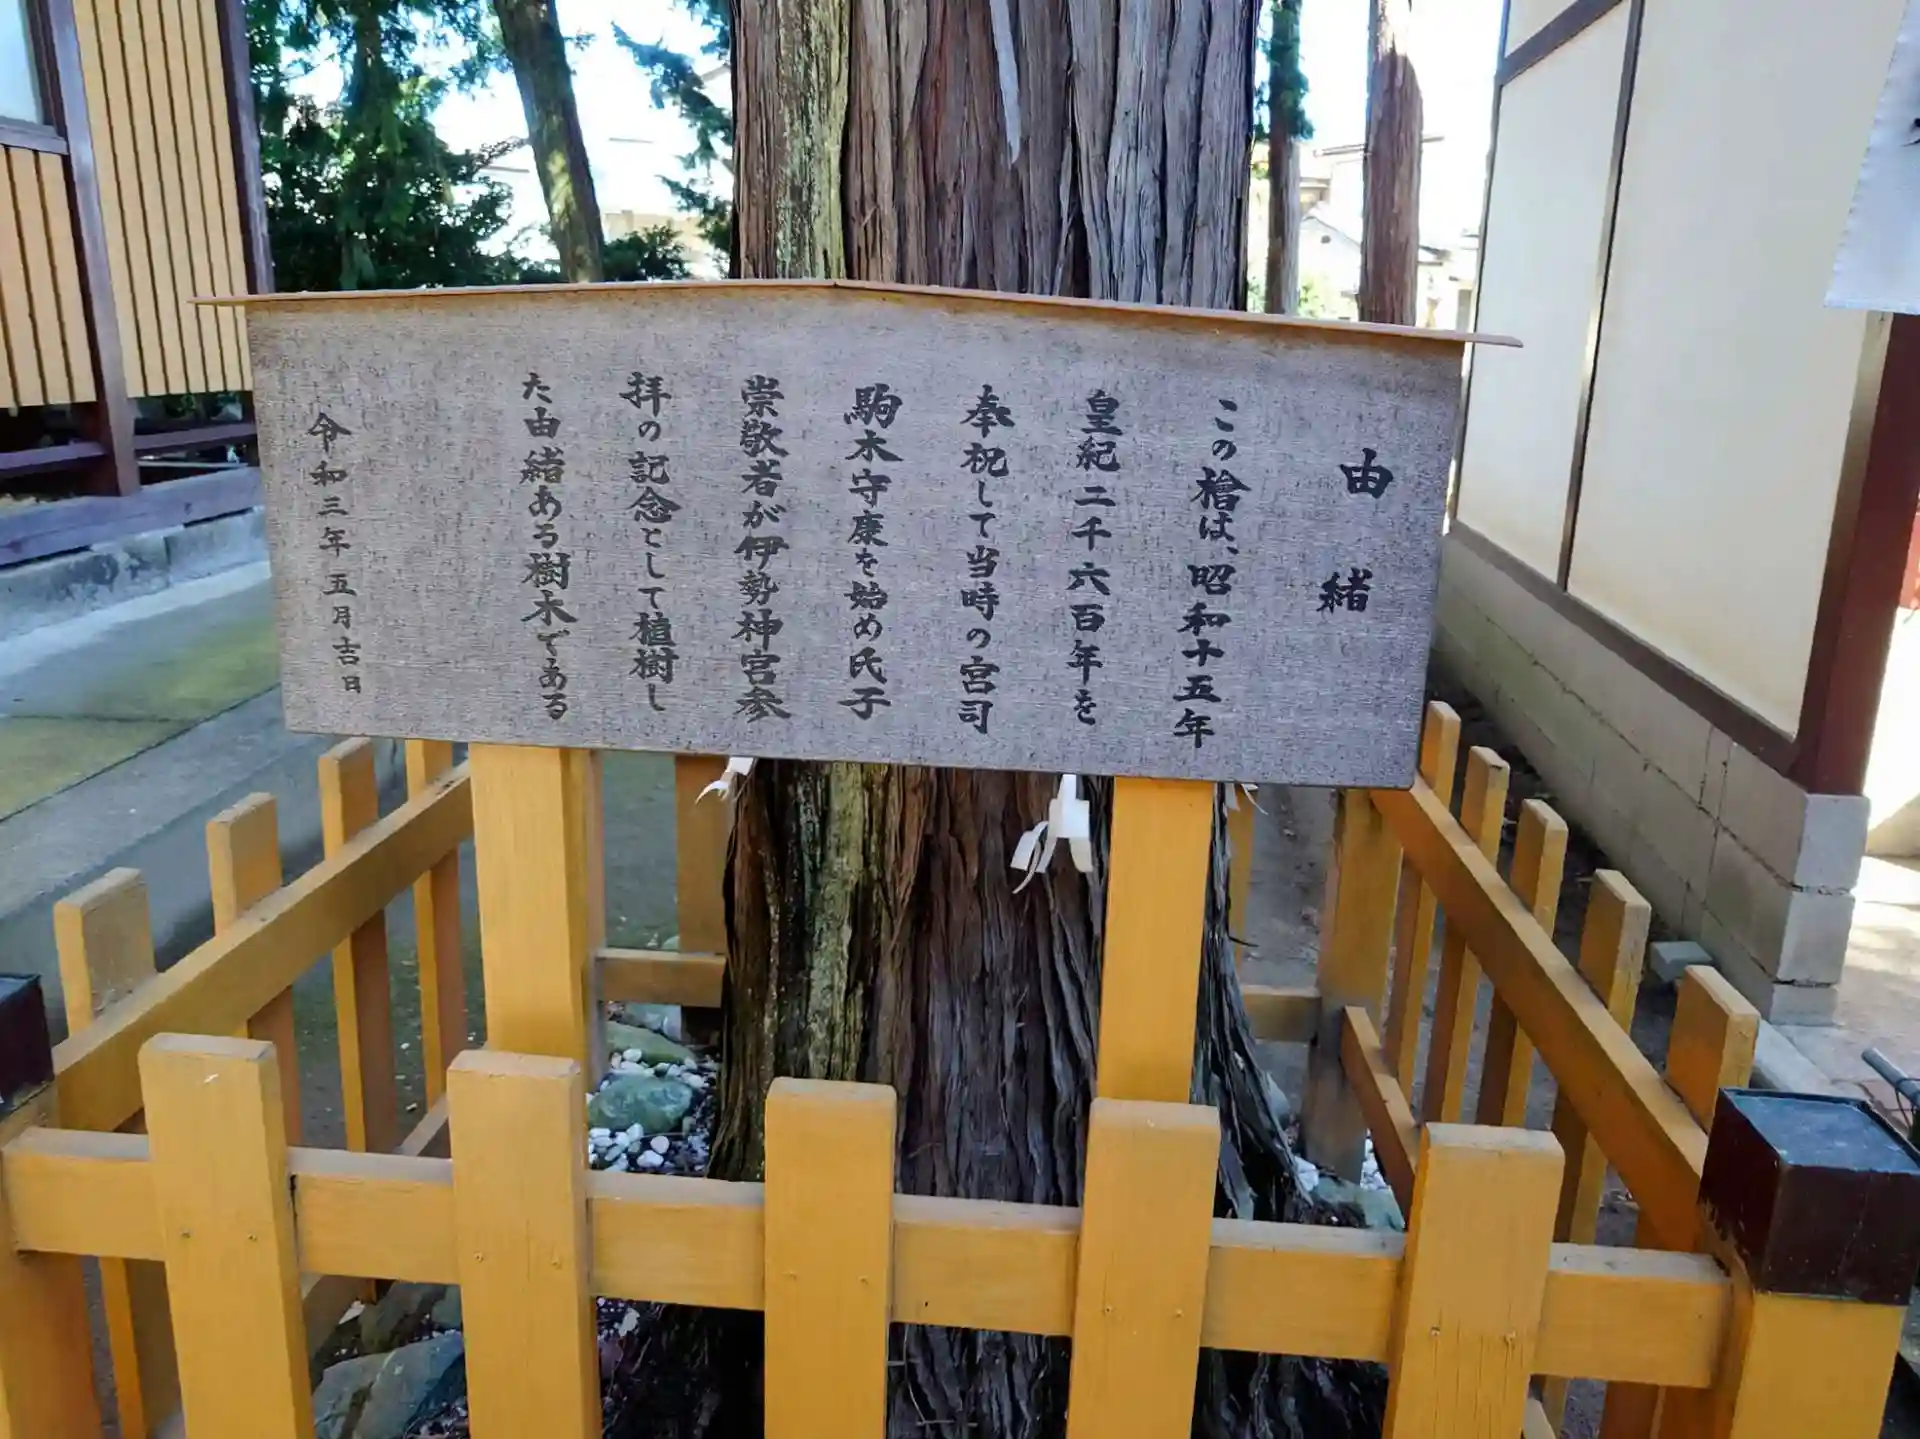 由緒
この檜は、昭和十五年
皇紀二千六百年を
奉祝して当時の宮司
駒木守康を始め氏子
崇敬者が伊勢神宮参
拝の記念として植樹し
た由緒ある樹木である
令和三年五月吉日